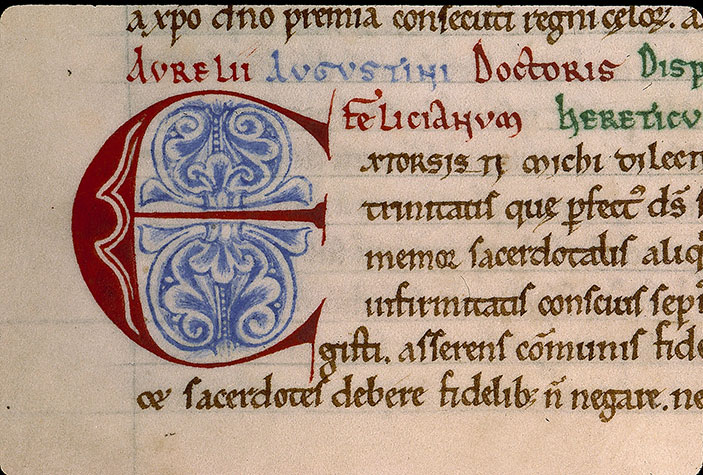 a xpo dño premia consecuti regni cęlor. a
AURELII AUGUSTINI DOCTORIS DISP
FELICIANUM HERETICU
EXTORSISTI michi dilect
trinitatis que ꝑfect᾽ ds̄
memor sacerdotalis aliq
infirmitatis conscius sep
gisti. asserens cōmunis fide
ce sacerdotes debere fidelib; ñ negare. ne